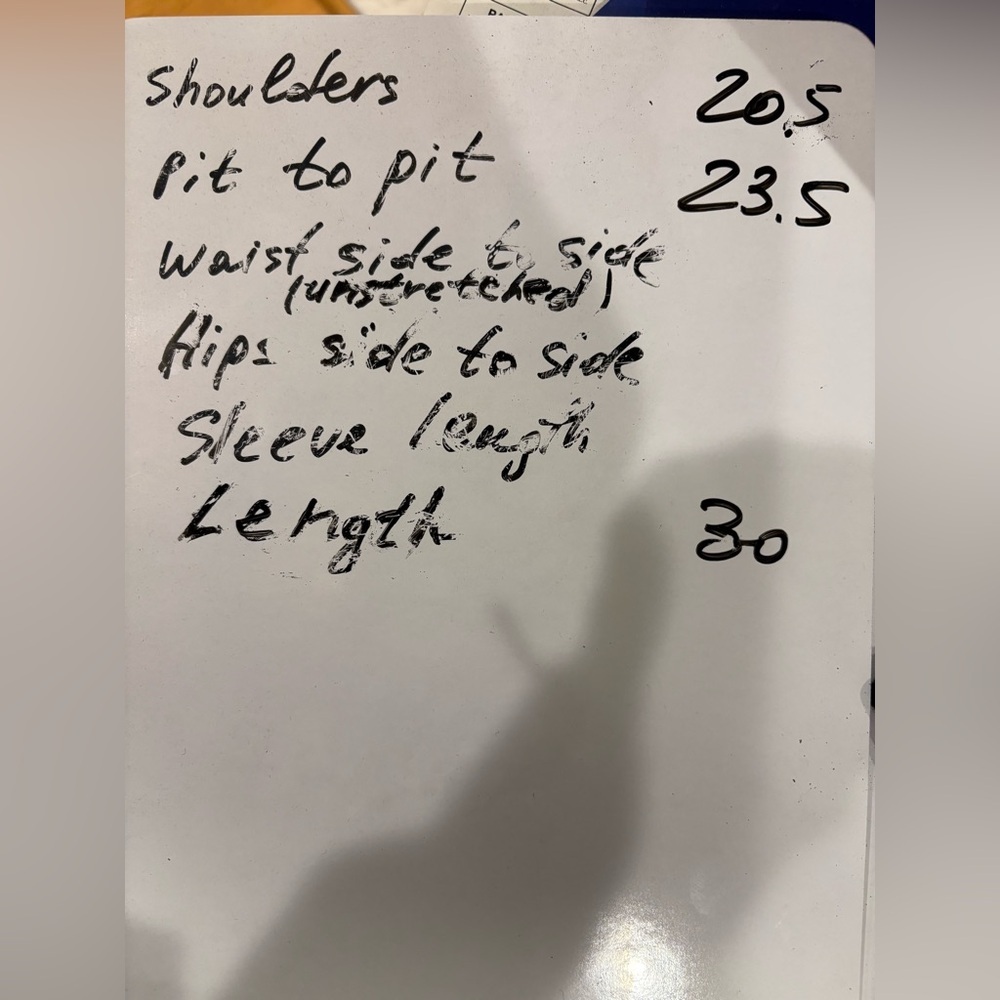 Shoulders 20.5
Pit to pit 23.5
Waist side to side
(unstretched)
Hips side to side
Sleeve length
Length 30